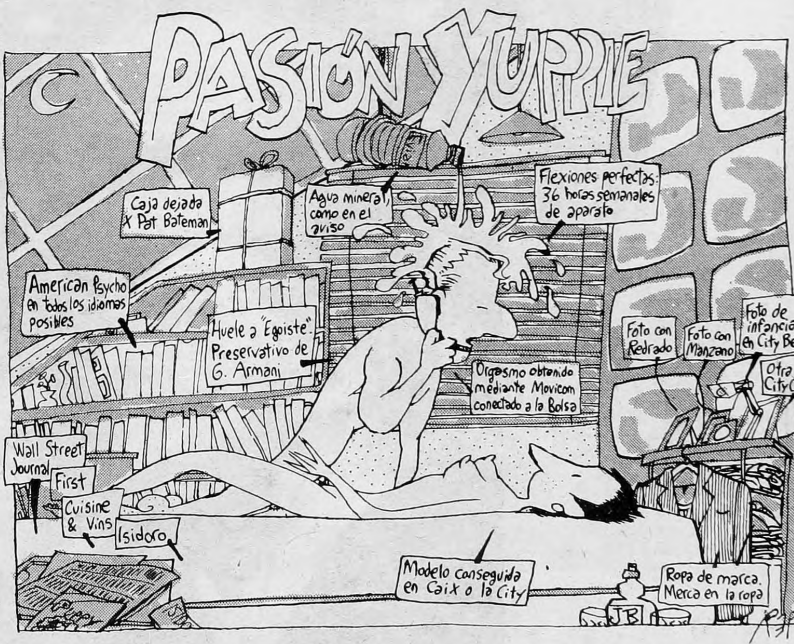 PASIÓN YUPPIE
Caja dejada
X Pat Bateman
Agua mineral,
como en el
aviso
Flexiones perfectas:
36 horas semanales
de aparato
American Psycho
en todos los idiomas
posibles
Huele a "Egoiste".
Preservativo de
G. Armani
Orgasmo obtenido
mediante Movicom
conectado a la Bolsa
Foto con
Redrado
Foto con
Manzano
Foto de
infancia
en City Be
Otra
City
Wall Street
Journal
First
Cuisine
& Vins
Isidoro
Modelo conseguida
en Caix o la City
JB
Ropa de marca.
Merca en la ropa